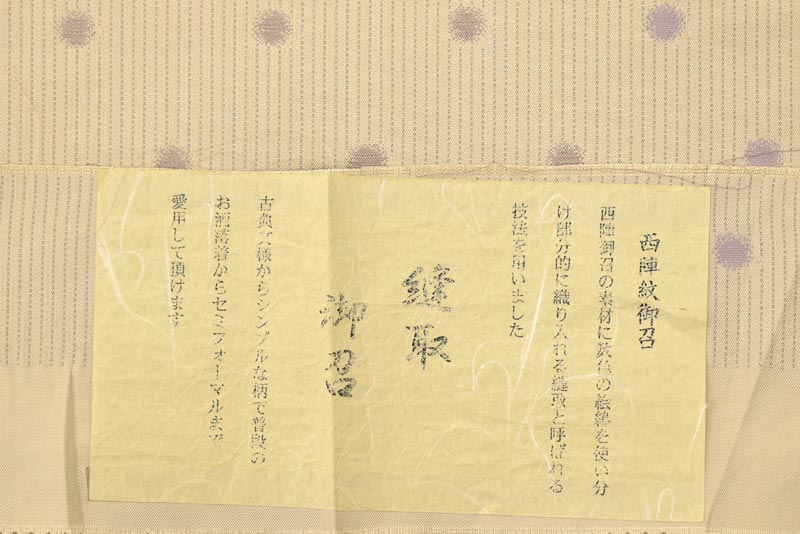 西陣紋御召
西陣御召の素材に数色の絵緯を使い分
け部分的に織り入れる縫取と呼ばれる
技法を用いました
縫取
御召
古典文様からシンプルな柄で普段の
お洒落着からセミフォーマルまで
愛用して頂けます